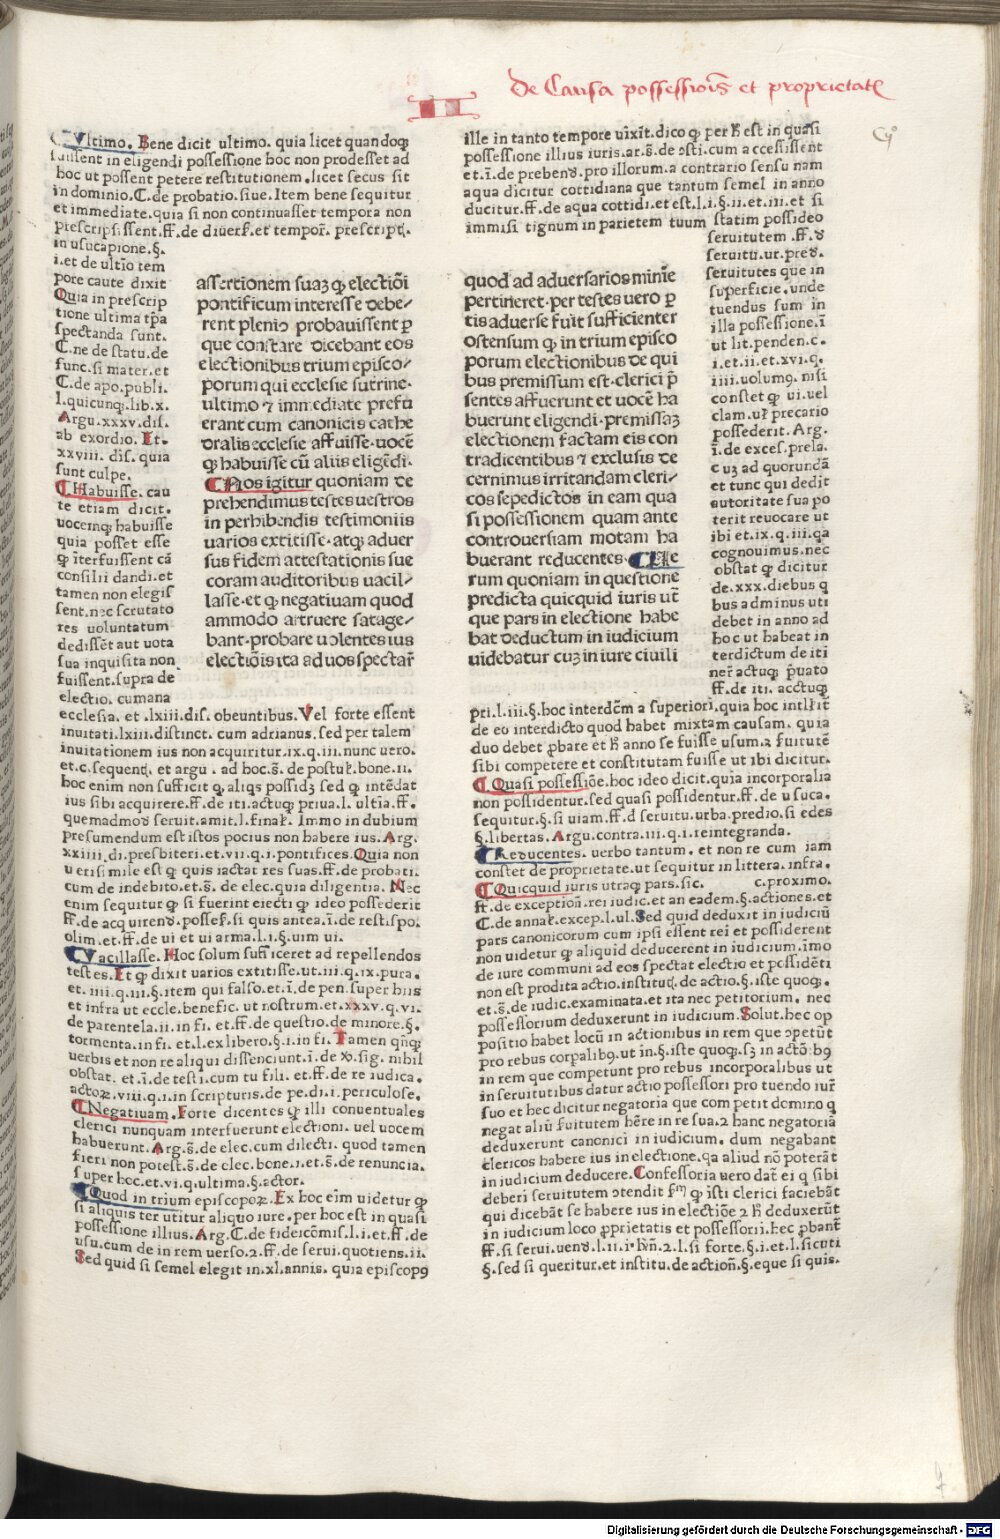 II
De Causa possessiōis et proprietatꝭ
Vltimo. Bene dicit ultimo. quia licet quandoqꝫ
fuissent in eligendi possessione hoc non prodesset ad
hoc ut possent petere restitutionem. licet secus sit
in dominio. C. de probatio. siue. Item bene sequitur
et immediate. quia si non continuasset tempora non
prescripsissent. ff. de diuers. et tempor. prescript.
in usucapione. §.
i. et de ultio tem
pore caute dixit
Quia in prescrip
tione ultima tp̄a
spectanda sunt.
C. ne de statu. de
func. si mater. et
C. de apo. publi.
l. quicunqꝫ. lib. x.
Argu. xxxv. dis.
ab exordio. Et.
xxviii. dis. quia
sunt culpe.
Habuisse. cau
te etiam dicit.
uocemqꝫ habuisse
quia posset esse
ꝙ īterfuissent cā
consilii dandi. et
tamen non elegis
sent. nec scrutato
res uoluntatum
dedissēt aut uota
sua inquisita non
fuissent. supra de
electio. cumana
ecclesia. et. lxiii. dis. obeuntibus. Vel forte essent
inuitati. lxiii. distinct. cum adrianus. sed per talem
inuitationem ius non acquiritur. ix. q. iii. nunc uero.
et. c. sequenti. et argu. ad hoc. s̄. de postul. bone. ii.
hoc enim non sufficit ꝙ aliqs possidꝫ sed ꝙ intēdat
ius sibi acquirere. ff. de iti. actuqꝫ priua. l. ultia. ff.
quemadmod seruit. amit. l. final. Immo in dubium
presumendum est istos pocius non habere ius. Arg.
xxiiii. di. presbiteri. et. vii. q. i. pontifices. Quia non
uerisimile est ꝙ quis iactat res suas. ff. de probati.
cum de indebito. et. s̄. de elec. quia diligentia. Nec
enim sequitur ꝙ si fuerint eiecti ꝙ ideo possederit
ff. de acquirend. posses. si quis antea. ī. de resti. spo.
olim. et. ff. de ui et ui arma. l. i. §. uim ui.
Vacillasse. Hoc solum sufficeret ad repellendos
testes. Et ꝙ dixit uarios extitisse. ut. iii. q. ix. pura.
et. iiii. q. iii. §. item qui falso. et. ī. de pen. super hiis
et infra ut eccle. benefic. ut nostrum. et. xxxv. q. vi.
de parentela. ii. in fi. et. ff. de questio. de minore. §.
tormenta. in fi. et. l. ex libero. §. i. in fi. Tamen qn̄qꝫ
uerbis et non re aliqui dissenciunt. ī. de ꝟo. sig. nibil
obstat. et. ī. de testi. cum tu fili. et. ff. de re iudica.
actoꝝ. viii. q. i. in scripturis. de pe. di. i. periculose.
Negatiuam. Forte dicentes ꝙ illi conuentuales
clerici nunquam interfuerunt electioni. uel uocem
habuerunt. Arg. s̄. de elec. cum dilecti. quod tamen
fieri non potest. s̄. de elec. bone. i. et. s̄. de renuncia.
super hoc. et. vi. q. ultima. §. actor.
Quod in trium episcopoꝝ. Ex hoc eim uidetur ꝙ
si aliquis ter utitur aliquo iure. per hoc est in quasi
possessione illius. Arg. C. de fideicōmis. l. i. et. ff. de
usu. cum de in rem uerso. 2. ff. de serui. quotiens. ii.
Sed quid si semel elegit in. xl. annis. quia episcopꝰ
assertionem suaꝫ ꝙ electiōi
pontificum interesse debe/
rent plenio probauissent p̄
que constare dicebant eos
electionibus trium episco/
porum qui ecclesie sutrine.
ultimo ⁊ immediate prefu
erant cum canonicis cathe
dralis ecclesie affuisse. uocē
ꝙ habuisse cū aliis eligēdi.
Nos igitur quoniam de
prehendimus testes uestros
in perhibendis testimoniis
uarios extitisse. atqꝫ aduer
sus fidem attestationis sue
coram auditoribus uacil/
lasse. et ꝙ negatiuam quod
ammodo astruere satage/
bant. probare uolentes ius
electiōis ita ad uos spectar̄
quod ad aduersarios minīe
pertineret. per testes uero p̄
tis aduerse fuit sufficienter
ostensum ꝙ in trium episco
porum electionibus de qui
bus premissum est. clerici p̄
sentes affuerunt et uocē ha
buerunt eligendi. premissaꝫ
electionem factam eis con
tradicentibus ⁊ exclusis de
cernimus irritandam cleri/
cos sepedictos in eam qua
si possessionem quam ante
controuersiam motam ha
buerant reducentes. Ce
rum quoniam in questione
predicta quicquid iuris ut̄
que pars in electione habe
bat deductum in iudicium
uidebatur cuꝫ in iure ciuili
ille in tanto tempore uixit. dico ꝙ per h̄ est in quasi
possessione illius iuris. ar. s̄. de osti. cum accessissent
et. ī. de prebend. pro illorum. a contrario sensu nam
aqua dicitur cottidiana que tantum semel in anno
ducitur. ff. de aqua cottidi. et est. l. i. §. ii. et. iii. et si
immisi tignum in parietem tuum statim possideo
seruitutem. ff. d
seruitu. ur. pred.
seruitutes que in
superficie. unde
tuendus sum in
illa possessione. ī
ut lit. penden. c.
i. et. ii. et. xvi. q.
iiii. uolumꝰ. nisi
constet ꝙ ui. uel
clam. ul precario
possederit. Arg.
ī. de exces. prela.
cuꝫ ad quorundā
et tunc qui dedit
autoritate sua po
terit reuocare ut
ibi et. ix. q. iii. ꝗa
cognouimus. nec
obstat ꝙ dicitur
de. xxx. diebus q
bus adminus uti
debet in anno ad
hoc ut habeat in
terdictum de iti
ner̄ actuqꝫ p̄uato
ff. de iti. acctuqꝫ
pri. l. iii. §. hoc interdcm̄ a superiori. quia hoc intllit
de eo interdicto quod habet mixtam causam. quia
duo debet ꝓbare et h̄ anno se fuisse usum. 2 fuitutē
sibi competere et constitutam fuisse ut ibi dicitur.
Quasi possessiōe. hoc ideo dicit. quia incorporalia
non possidentur. sed quasi possidentur. ff. de usuca.
sequitur. §. si uiam. ff. d seruitu. urba. predio. si edes
§. libertas. Argu. contra. iii. q. i. reintegranda.
Reducentes. uerbo tantum. et non re cum iam
constet de proprietate. ut sequitur in littera. infra.
Quicquid iuris utraqꝫ pars. sic. c. proximo.
ff. de exception. rei iudic. et an eadem. §. actiones. et
C. de annal. excep. l. ul. Sed quid deduxit in iudiciū
pars canonicorum cum ipsi essent rei et possiderent
non uidetur ꝙ aliquid deducerent in iudicium. īmo
de iure communi ad eos spectat electio et possidēti
non est prodita actio. institut. de actio. §. iste quoqꝫ.
et. s̄. de iudic. examinata. et ita nec petitorium. nec
possessorium deduxerunt in iudicium. Solut. hec op
positio habet locū in actionibus in rem que ꝯpetūt
pro rebus corpalibꝰ. ut in. §. iste quoqꝫ. sꝫ in actōibꝰ
in rem que competunt pro rebus incorporalibus ut
in seruitutibus datur actio possessori pro tuendo iur̄
suo et hec dicitur negatoria que com petit domino ꝗ
negat aliū fuitutem hēre in re sua. 2 hanc negatoriā
deduxerunt canonici in iudicium. dum negabant
clericos habere ius in electione. ꝗa aliud nō poterāt
in iudicium deducere. Confessoria uero dat̄ ei ꝗ sibi
deberi seruitutem ꝯtendit sm ꝙ īsti clerici faciebāt
qui dicebāt se habere ius in electiōe 2 h̄ deduxerūt
in iudicium loco ꝓprietatis et possessorii. hec ꝓbant̄
ff. si serui. uend. l. ii. i. hn̄. 2. l. si forte. §. i. et. l. sicuti
§. sed si queritur. et institu. de action. §. eque si quis.
Digitalisierung gefördert durch die Deutsche Forschungsgemeinschaft - DFG